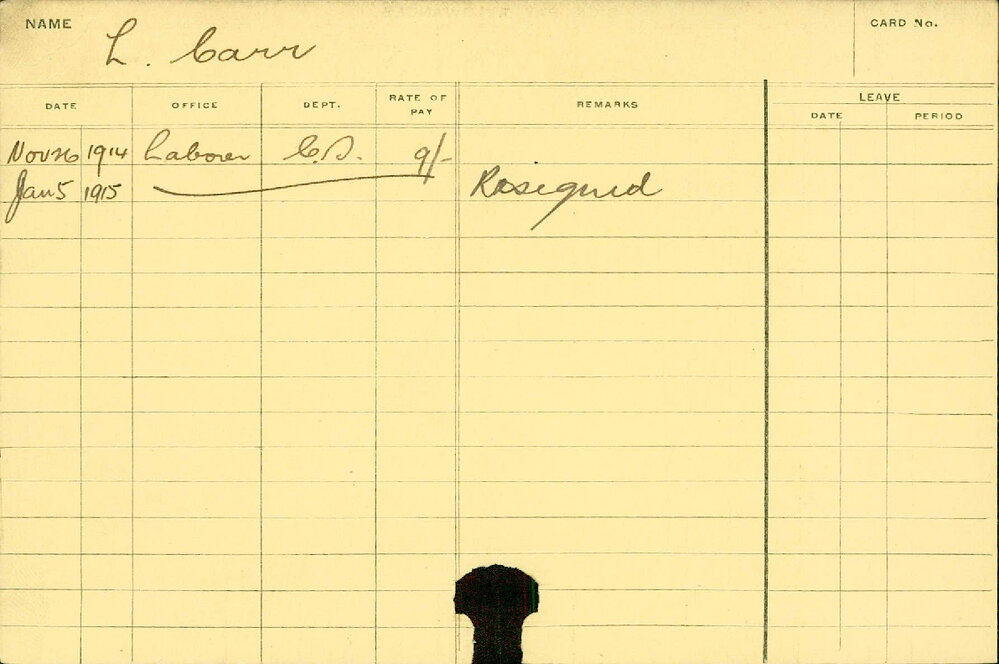 NAME L. Carr CARD No.
DATE OFFICE DEPT. RATE OF PAY REMARKS LEAVE
DATE PERIOD
Nov 26 1914 Laborer C.S. 9/-
Jan 5 1915 Resigned